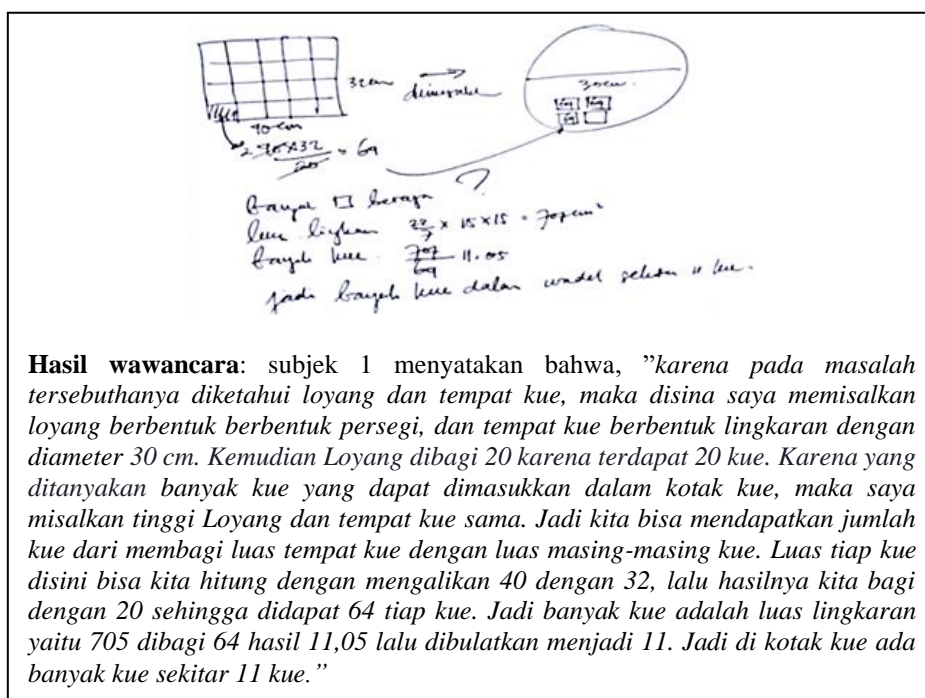 32 cm
dimasukkan
30 cm.
64 64
64
40 cm
2 40 x 32 = 64
20
Banyak □ berapa ?
luas lingkaran 22/7 x 15 x 15 = 707 cm²
banyak kue 707/64 11.05
jadi banyak kue dalam wadah sekitar 11 kue.
Hasil wawancara: subjek 1 menyatakan bahwa, ”karena pada masalah
tersebuthanya diketahui loyang dan tempat kue, maka disina saya memisalkan
loyang berbentuk berbentuk persegi, dan tempat kue berbentuk lingkaran dengan
diameter 30 cm. Kemudian Loyang dibagi 20 karena terdapat 20 kue. Karena yang
ditanyakan banyak kue yang dapat dimasukkan dalam kotak kue, maka saya
misalkan tinggi Loyang dan tempat kue sama. Jadi kita bisa mendapatkan jumlah
kue dari membagi luas tempat kue dengan luas masing-masing kue. Luas tiap kue
disini bisa kita hitung dengan mengalikan 40 dengan 32, lalu hasilnya kita bagi
dengan 20 sehingga didapat 64 tiap kue. Jadi banyak kue adalah luas lingkaran
yaitu 705 dibagi 64 hasil 11,05 lalu dibulatkan menjadi 11. Jadi di kotak kue ada
banyak kue sekitar 11 kue.”